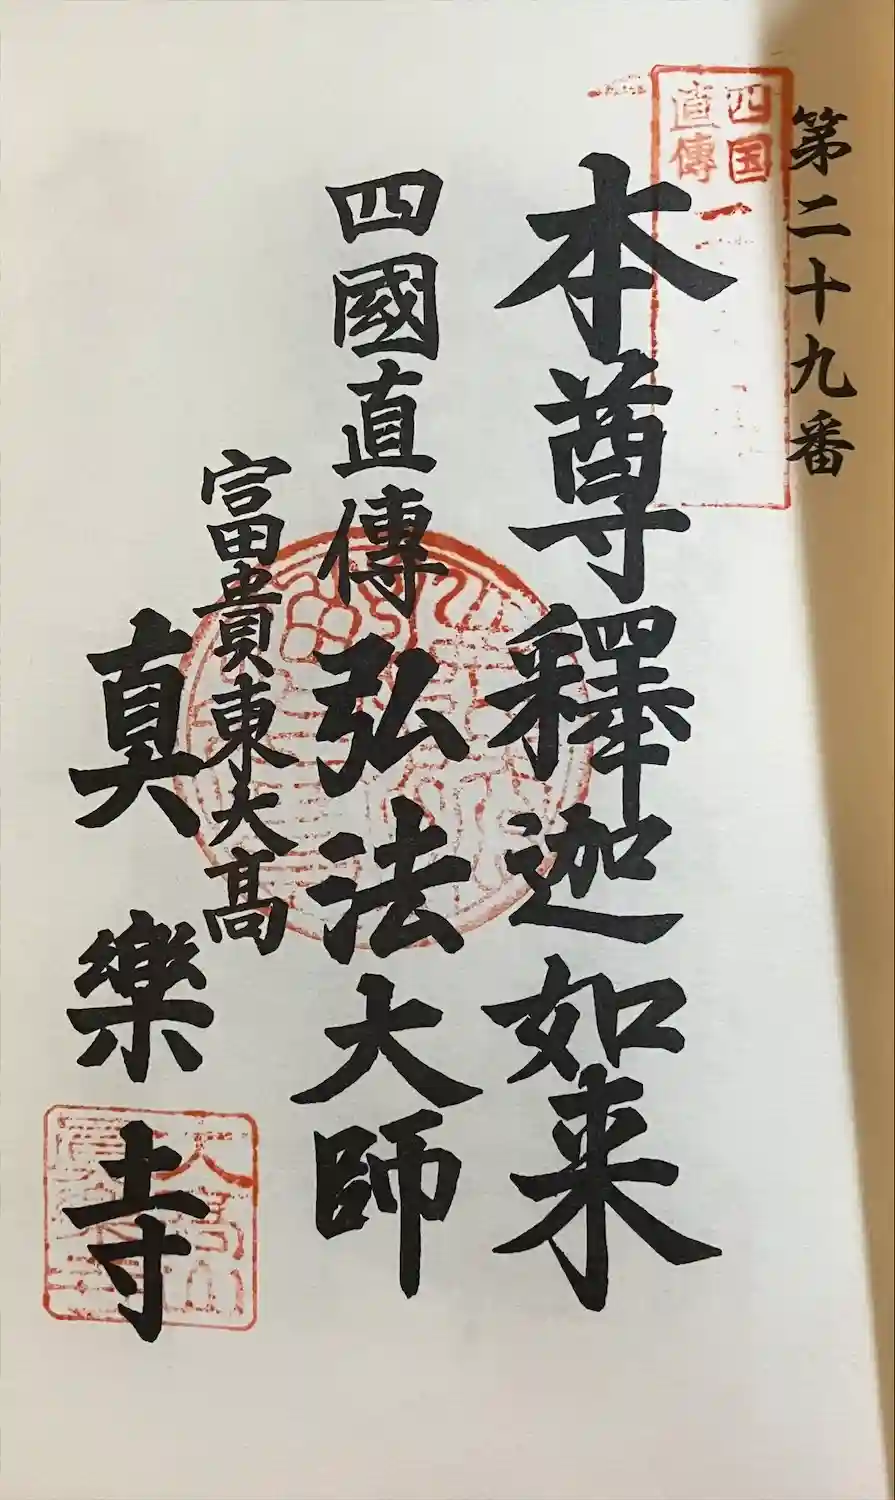 第二十九番
四国
直傳
本尊釋迦如来
四國直傳弘法大師
富貴東大高
真樂寺
大高山
真樂寺